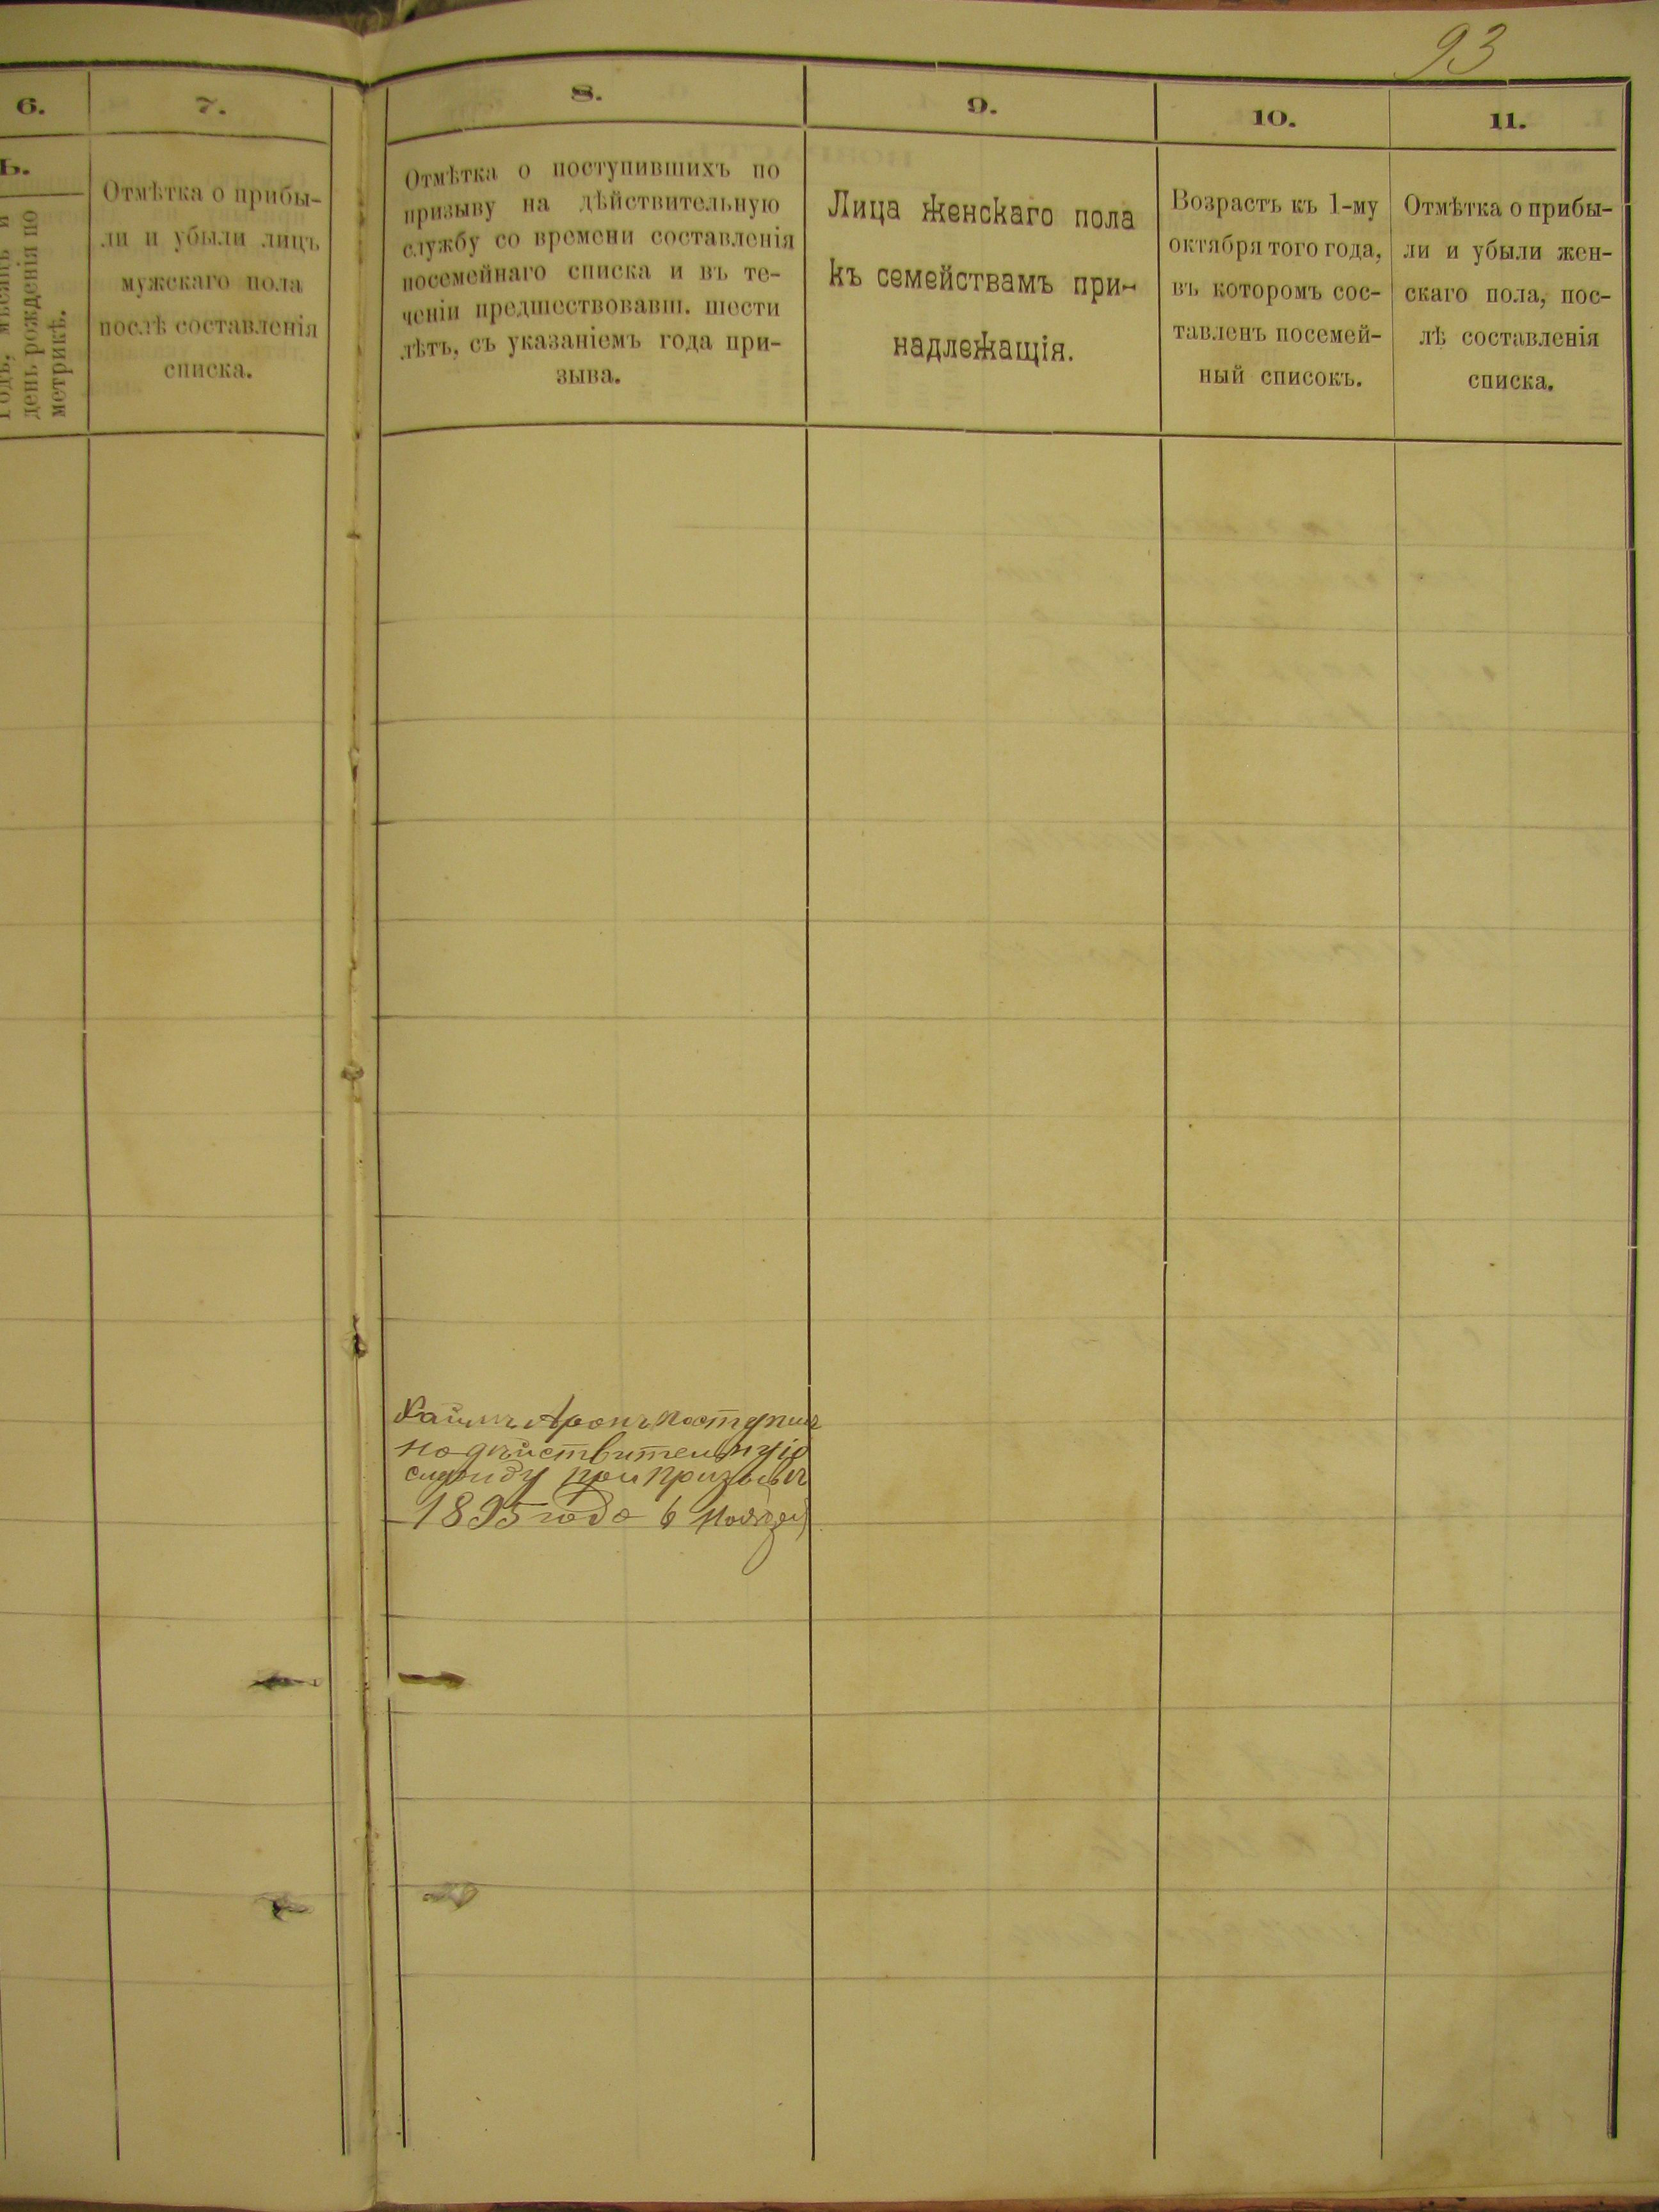 93
6.
7.
8.
9.
10.
11.
ь.
Годъ, мѣсяцъ и
день рожденія по
метрикѣ.
Отмѣтка о прибы-
ли и убыли лицъ
мужскаго пола
послѣ составленія
списка.
Отмѣтка о поступившихъ по
призыву на дѣйствительную
службу со времени составленія
посемейнаго списка и въ те-
ченіи предшествовавш. шести
лѣтъ, съ указаніемъ года при-
зыва.
Лица женскаго пола
къ семействамъ при-
надлежащія.
Возрастъ къ 1-му
октября того года,
въ которомъ сос-
тавленъ посемей-
ный списокъ.
Отмѣтка о прибы-
ли и убыли жен-
скаго пола, пос-
лѣ составленія
списка.
Хаимъ Аронъ поступилъ
на дѣйствительную
службу при призывѣ
1895 года 6 Ноября